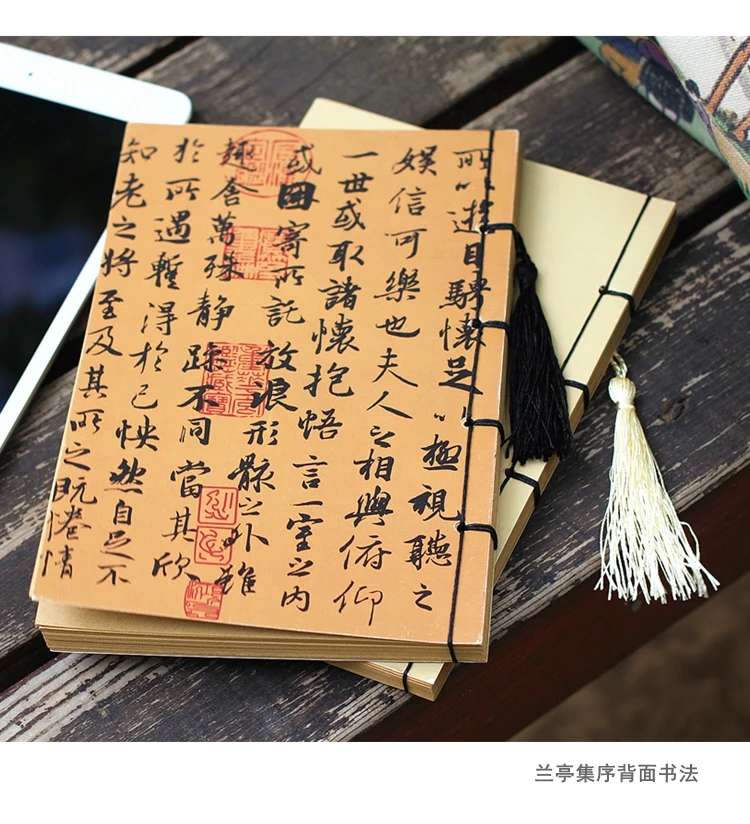 所以遊目騁懷足以極視聽之
娛信可樂也夫人之相與俯仰
一世或取諸懷抱悟言一室之內
或因寄所託放浪形骸之外雖
趣舍萬殊靜躁不同當其欣
於所遇暫得於己怏然自足不
知老之將至及其所之既惓情
兰亭集序背面书法